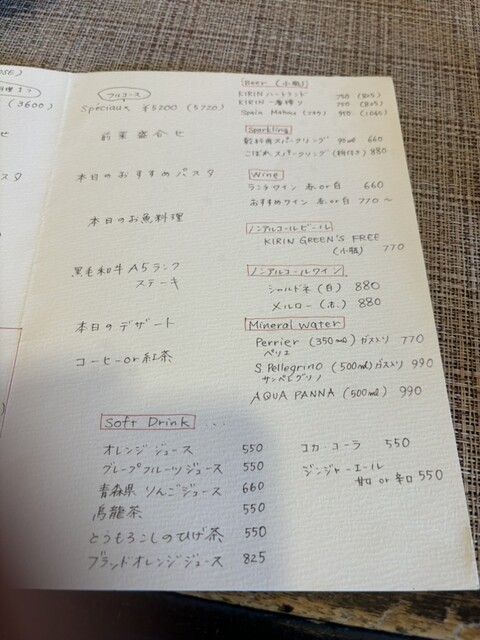 (3600)
フルコース
Spéciaux ¥5200 (5720)
前菜盛合せ
本日のおすすめパスタ
本日のお魚料理
黒毛和牛A5ランク
ステーキ
本日のデザート
コーヒーor紅茶
Beer (小瓶)
KIRIN ハートランド 750 (825)
KIRIN 一番搾り 750 (825)
Spain Mahou 950 (1045)
Sparkling
飲料用スパークリング 90ml 660
こぼれスパークリング (枡付き) 880
Wine
ランチワイン 赤or白 660
おすすめワイン 赤or白 770〜
ノンアルコールビール
KIRIN GREEN'S FREE
(小瓶) 770
ノンアルコールワイン
シャルドネ (白) 880
メルロー (赤) 880
Mineral water
Perrier (350ml) ガス入り 770
ペリエ
S.Pellegrino (500ml) ガス入り 990
サンペレグリノ
AQUA PANNA (500ml) 990
Soft Drink ...
オレンジジュース 550
グレープフルーツジュース 550
青森県 りんごジュース 660
烏龍茶 550
とうもろこしのひげ茶 550
ブラッドオレンジジュース 825
コカ・コーラ 550
ジンジャーエール
甘口 or 辛口 550